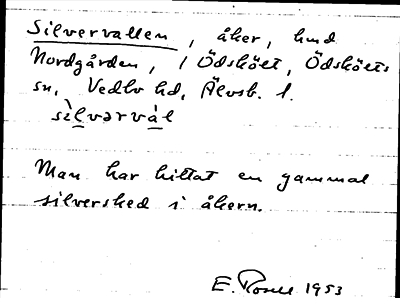 Silvervallen, åker, hmd
Nordgården, i Ödsköet, Ödskölts
sn, Vedbo hd, Älvsb. l.
sìlvərvàl
Man har hittat en gammal
silversked i åkern.
E. Rosell 1953